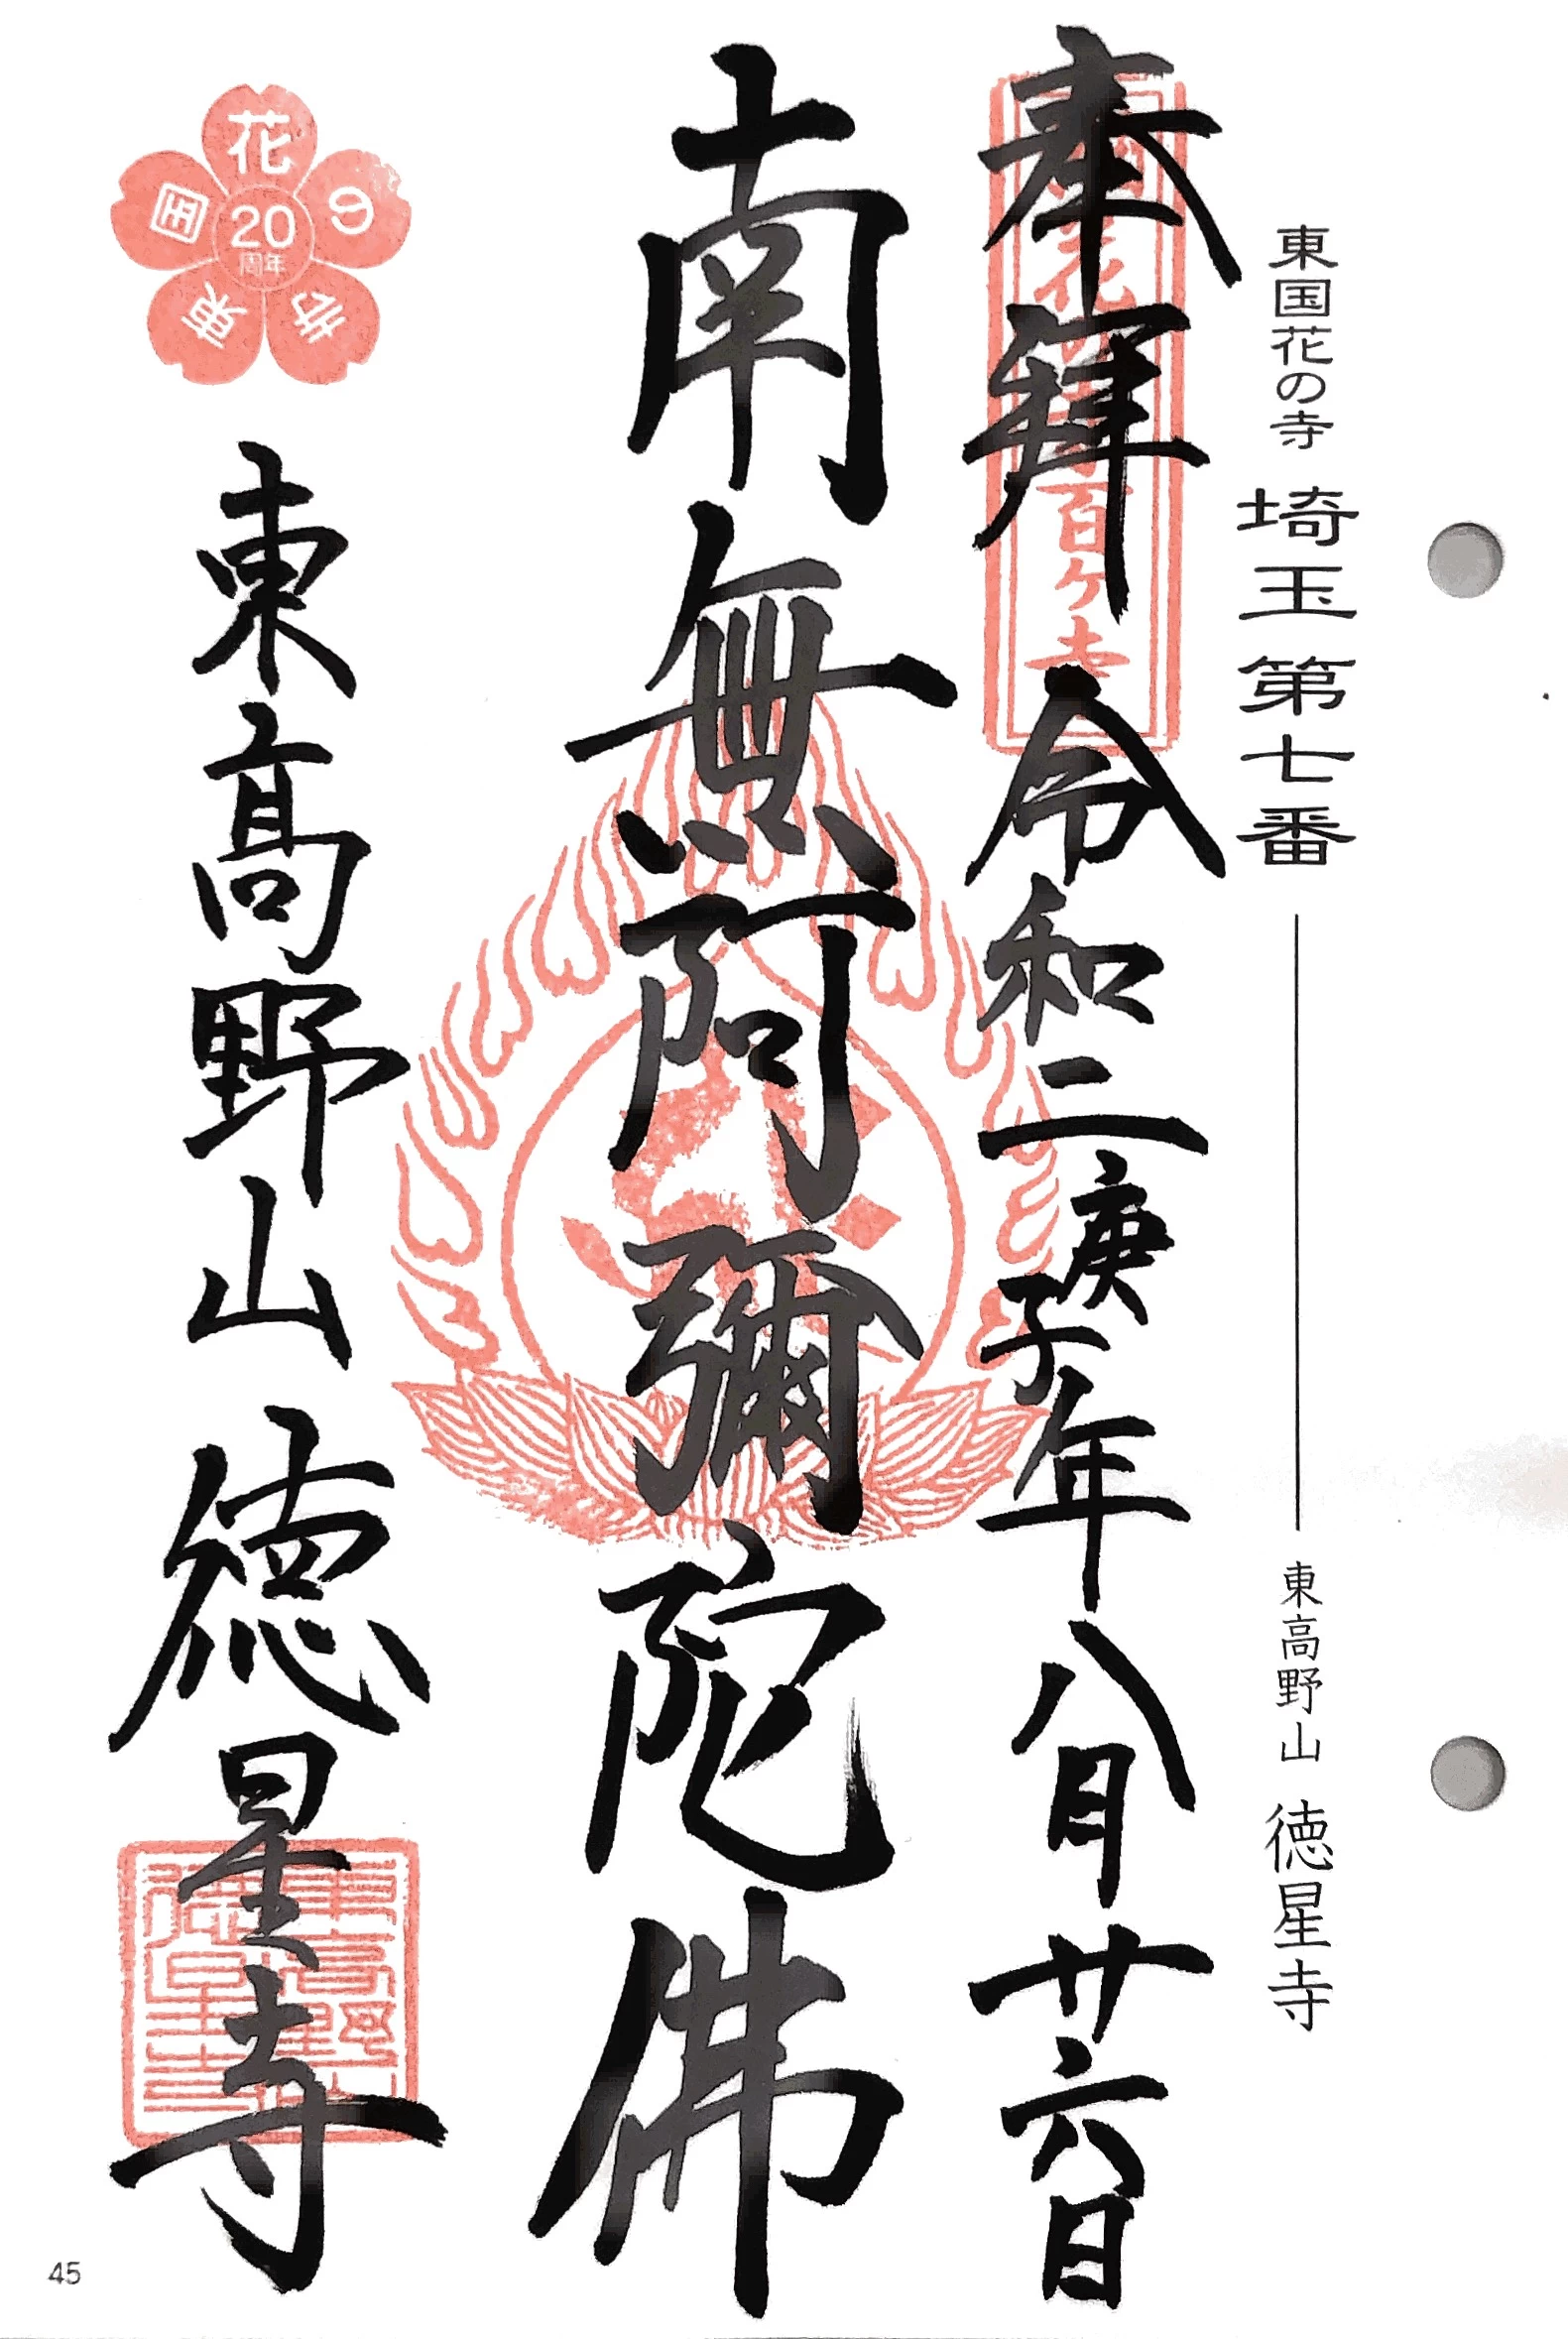 東国花の寺 埼玉第七番 東高野山 徳星寺
奉拝 令和二庚子年八月廿六日
花 百ケ寺
南無阿彌陀佛
東国花の寺
20
周年
東高野山 徳星寺
東高野山
徳星寺
45